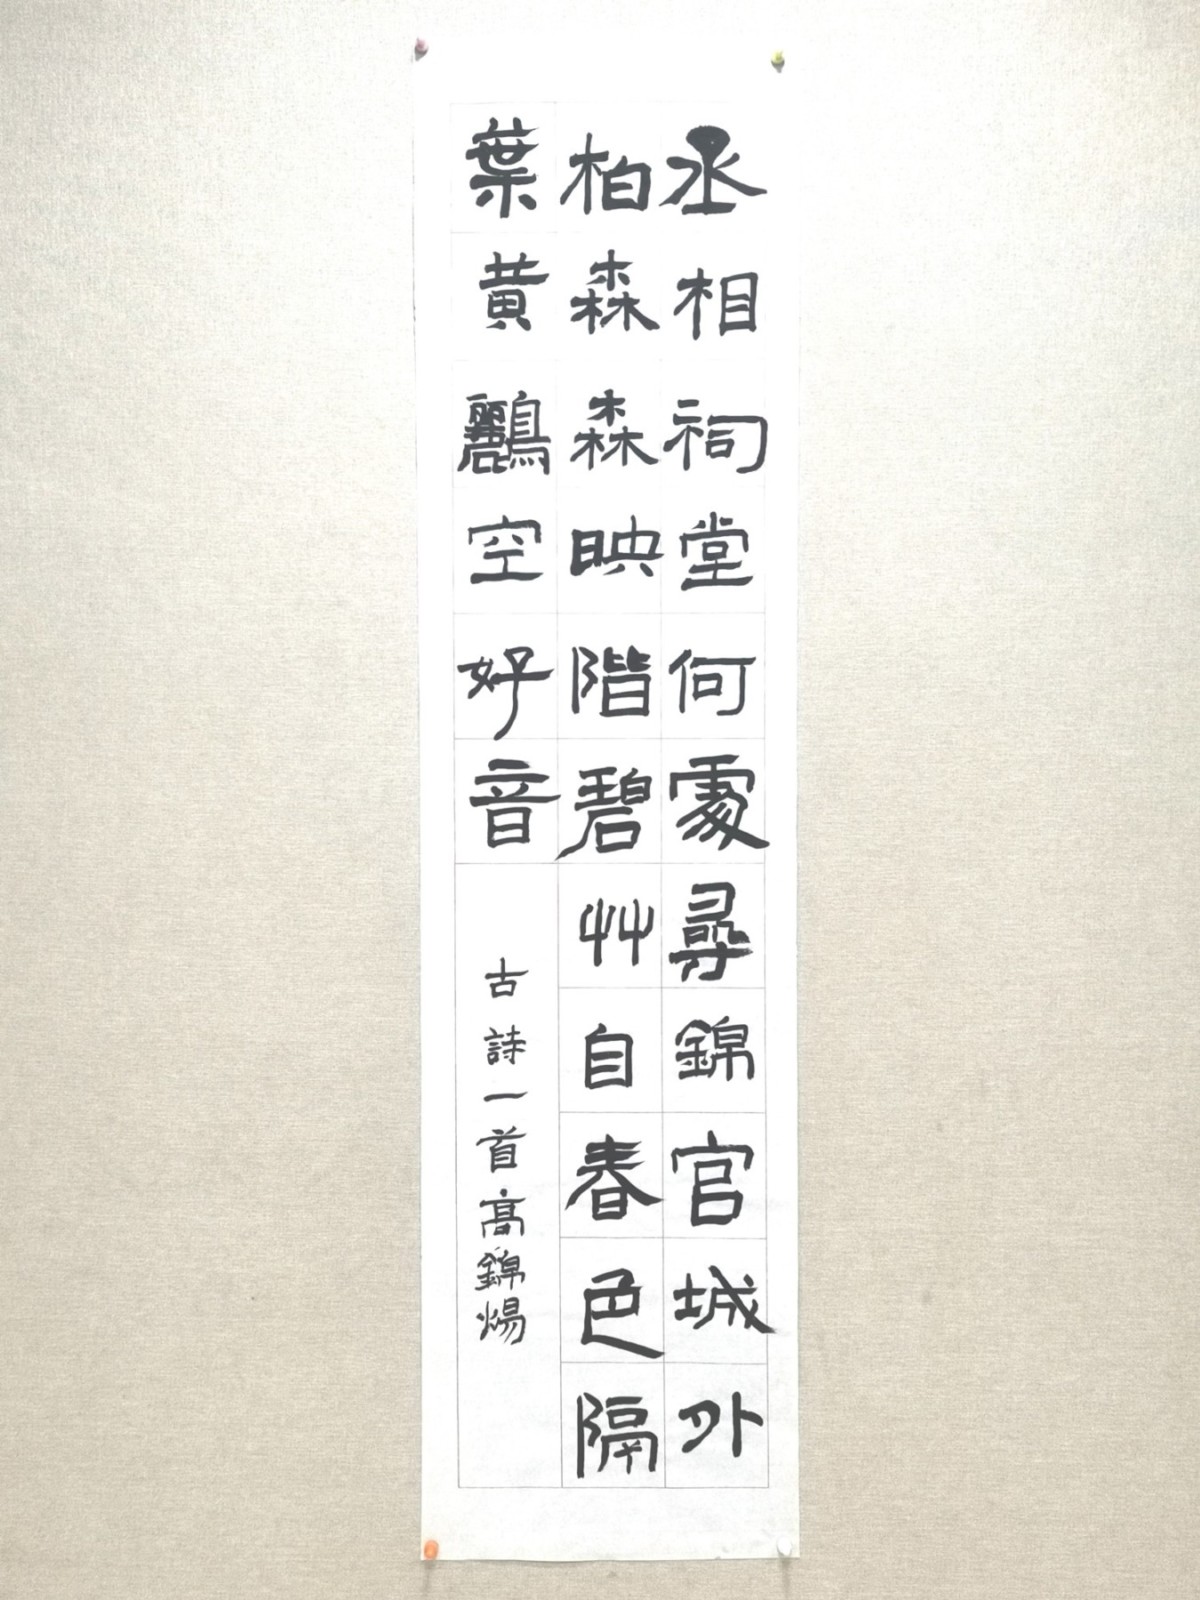 丞相祠堂何處尋錦官城外
柏森森映階碧艸自春色隔
葉黃鸝空好音
古詩一首高錦煬